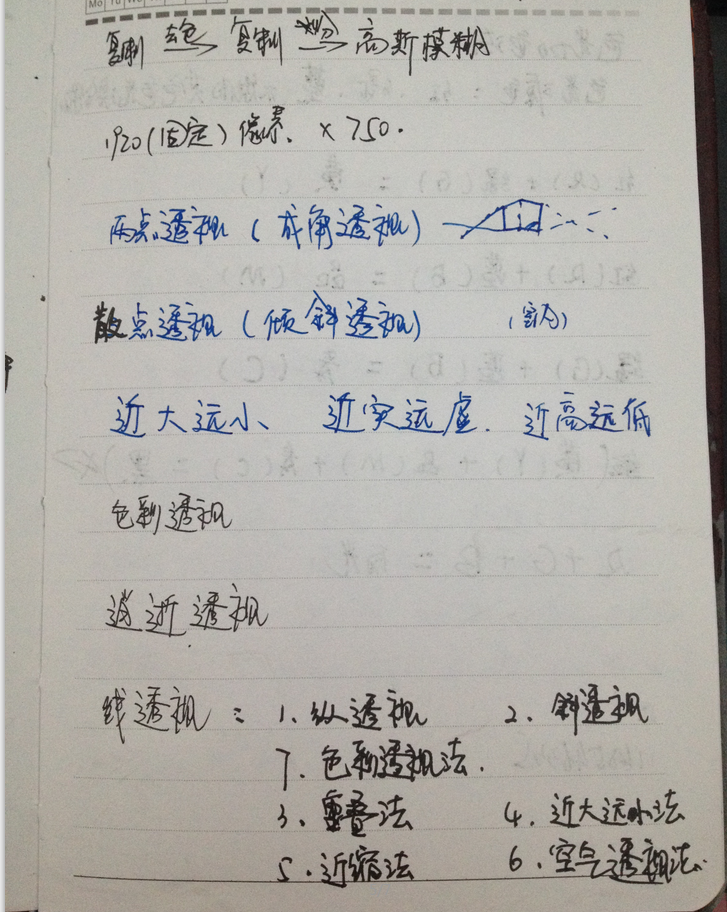 Mo Tu We
复制 去色 复制 高斯模糊
1920(固定)像素. x 750.
两点透视 (成角透视)
散点透视 (倾斜透视) (室内)
近大远小、 近实远虚. 近高远低
色彩透视
消逝透视
线透视: 1、纵透视 2、斜透视
7、色彩透视法.
3、重叠法 4、近大远小法
5、近缩法 6、空气透视法.